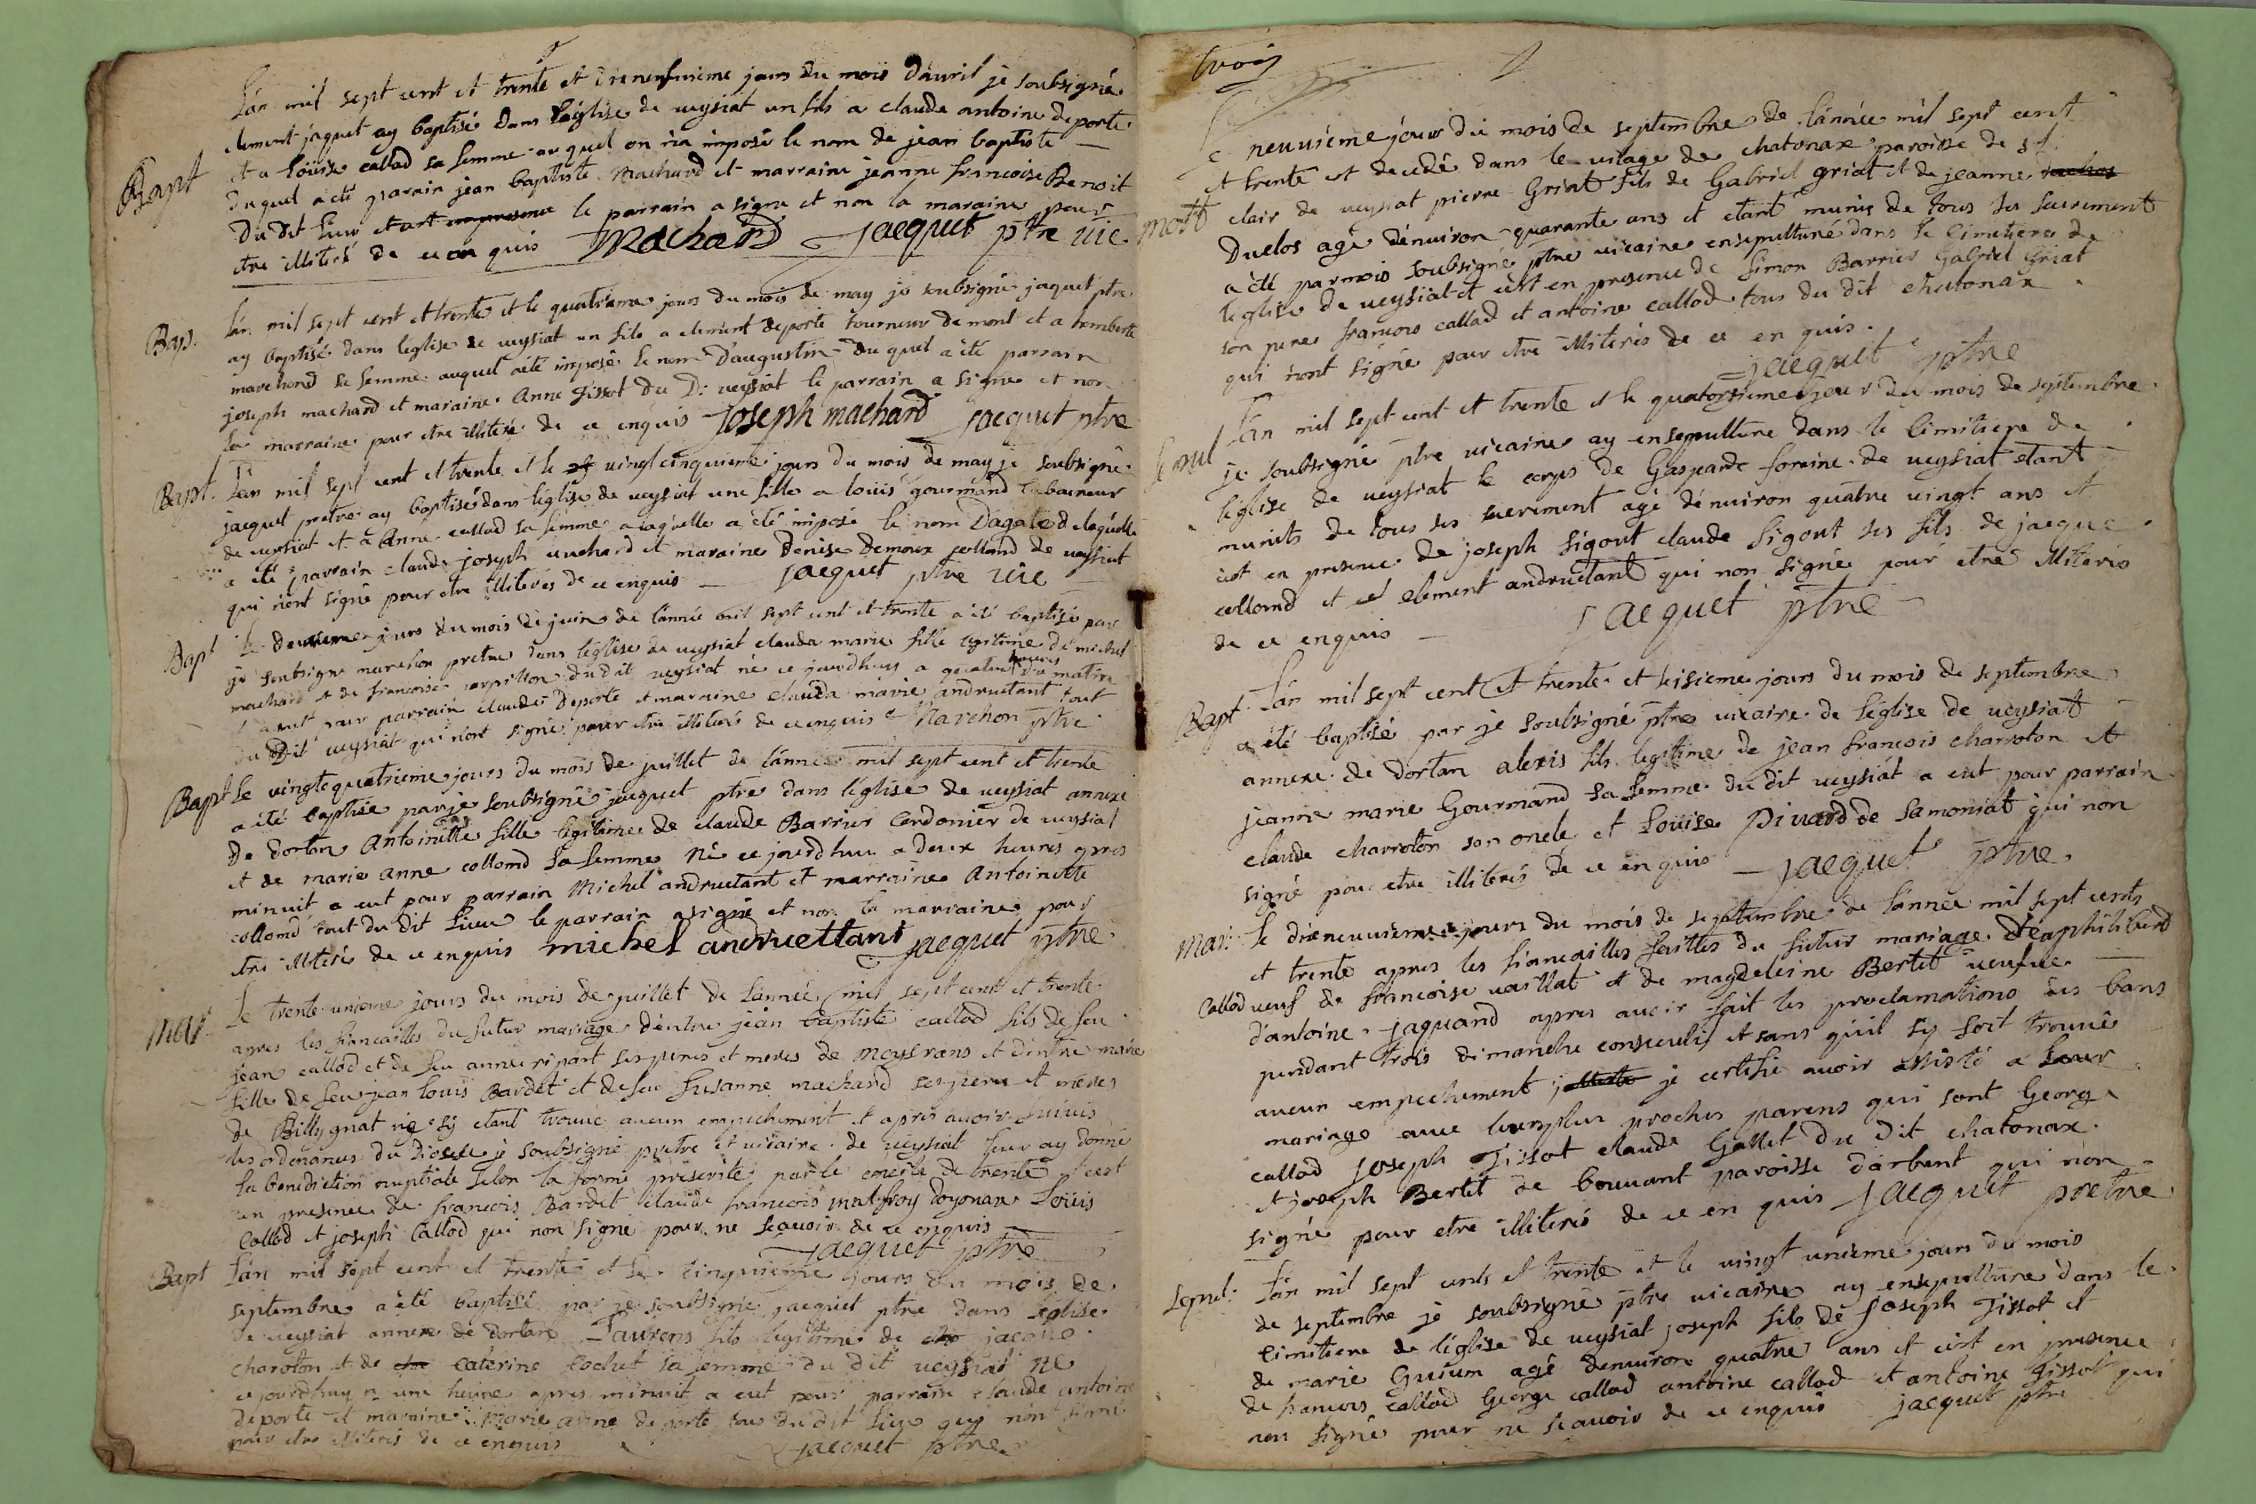 Lan mil sept cent et trente et dienenfuieme jours du mois Dauril je soubsigné
clement jaquet ay baptisé dans l'église de ueysiat un fils a claude antoine deporte
Bapt
et a louise callod sa femme auquel on n'a imposé le nom de jean baptiste
duquel a été parain jean baptiste Machard et marraine jeanne francoise Benoit
du dit lieu et le parrain a signe et non la maraine pour
etre illiteré de ce en quis Machard Jacquet ptre uic
Bap. Lan mil sept cent et trente et le quatrieme jours du mois de may je soubsigné jaquet ptre
ay baptisé dans léglise de ueysiat un fils a clement deporte tourneur de mont et a humberte
marchand sa femme auquel a été imposé le nom D'augustin du quel a été parrain
joseph machard et maraine Anne Tissot du D: ueysiat le parrain a signe et non
la marraine pour etre illiteré de ce enquis Joseph machard Jacquet ptre
Bapt. Lan mil sept cent et trente et le uingt cinquieme jours du mois de may je soubsigné
jacquet pretre ay baptisé dans léglise de ueysiat une fille a louis gourmand laboureur
de ueysiat et a Anne callod sa femme a laquelle a été imposé le nom Dagate de laquelle
a été parrain claude joseph machard et maraine Denise Demoux collomd de ueysiat
qui nont signé pour etre illiterés de ce enquis jacquet ptre uic
Bapt Le deuxieme jours du mois de juin de lannée mil sept cent et trente a été baptisé par
je soubsigne marchon pretre dans léglise de ueysiat clauda marie fille legitime de michel
machard et de francoise carpillon du dit ueysiat né ce jourdhuy a quatre heures du matin
et a eut pour parrain claude Deporte et maraine clauda marie andruetant tout
du Dit ueysiat qui nont signé pour etre illiteré de ce enquis Marchon ptre
Bapt Le uingt quatrieme jours du mois de juillet de lannée mil sept cent et trente
a été baptisée par je soubsigné jacquet ptre dans léglise de ueysiat annexe
de dortan Antoinette fille legitime de claude Barrier cordonier de ueysiat
et de marie anne collomd sa femme né ce jourdhuy a deux heures apres
minuit a eut pour parrain Michel andruetant et marraine Antoinette
collomd tout du dit lieu le parrain a signé et non la marraine pour
etre illiteré de ce enquis michel andruettant jacquet ptre
Mar. Le trente unieme jours du mois de juillet de lannée mil sept cent et trente
apres les fiancailles du futur mariage dentre jean baptiste callod fils de feu
jean callod et de feu anne ripart ses peres et meres de moysrans et dentre marie
fille de feu jean louis Bardet et de feu Susanne machard ses peres et meres
de Billygnat ne sy etant trouué aucun empechement et apres auoir suiuis
les ordonances du Diocese je soubsigné pretre et uicaire de ueysiat leur ay donné
la benediction nuptiale selon la forme prescrite par le concile de trente et cest
en presence de francois Bardet claude francois malfroy doyonax Louis
callod et joseph callod qui non signe pour ne scauoir de ce enquis
jacquet ptre
Bapt Lan mil sept cent et trente et le cinquieme jours du mois de
septembre a été baptisé par je soubsigné jacquet ptre dans léglise
de ueysiat annexe de dortan Laurens fils legitime de jacque
charoton et de caterine cochet sa femme du dit ueysiat né
ce jourdhuy a une heure apres minuit a eut pour parrain claude antoine
deporte et maraine marie anne deporte tous du dit lieu quy nont signé
pour etre illiterés de ce enquis jacquet ptre
trois
Le neuuieme jour du mois de septembre de lannée mil sept cent
et trente est decedé dans le uilage de chatonax paroisse de st
mort clair de ueysiat pierre Griat fils de Gabriel griat et de jeanne
Duclos agé denuiron quarante ans et etant munis de tous les sacrement
a été par mois soubsigné ptre uicaire ensepulturé dans le cimetiere de
léglise de ueysiat et cest en presence de simon Barrier Gabriel Griat
son pere francois callod et antoine callod tous du dit chatonax
qui nont signé pour etre illiterés de ce en quis.
jacquet ptre
Lan mil sept cent et trente et le quatorsieme jour du mois de septembre
Sepul je soubsigné ptre uicaire ay ensepulturé dans le cimitiere de
léglise de ueysiat le corps de Gasparde foraine de ueysiat etant
munits de tous les sacrement agé denuiron quatre uingt ans et
cest en presence de joseph sigout claude sigout ses fils de jacque
collomd et clement andruetant qui non signé pour etre illiterés
de ce enquis jacquet ptre
Bapt Lan mil sept cent et trente et seisieme jours du mois de septembre
a été baptisé par je soubsigné ptre uicaire de léglise de ueysiat
annexe de dortan alexis fils legitime de jean francois charroton et
jeanne marie Gourmand sa femme du dit ueysiat a eut pour parrain
claude charroton son oncle et Louise Piuard de samoniat qui non
signé pour etre illiterés de ce en quis jacquet ptre
Mar: Le dixneuuieme jours du mois de septembre de lannée mil sept cents
et trente apres les fiancailles faittes du futur mariage déaphilibert
callod ueuf de francoise uaillat et de magdeleine Bertet ueufue
d'antoine jaquand apres auoir fait les proclamations des bans
pendant trois dimanche consecutif et sans quil sy soit trouué
aucun empechement je certifie auoir assisté a leur
mariage auec leurs plus proches parens qui sont George
callod joseph Tissot claude Gallet du Dit chatonax
et joseph Bertet de bouuant paroisse darbent qui non
signé pour etre illiterés de ce en quis jacquet pretre
Sepul: Lan mil sept cents et trente et le uingt unieme jours du mois
de septembre je soubsigné ptre uicaire ay ensepulturé dans le
cimitiere de léglise de ueysiat joseph fils de joseph Tissot et
de marie Guium agé denuiron quatre ans et cest en presence
de francois callod George callod antoine callod et antoine Tissot qui
non signé pour ne scauoir de ce enquis jacquet ptre